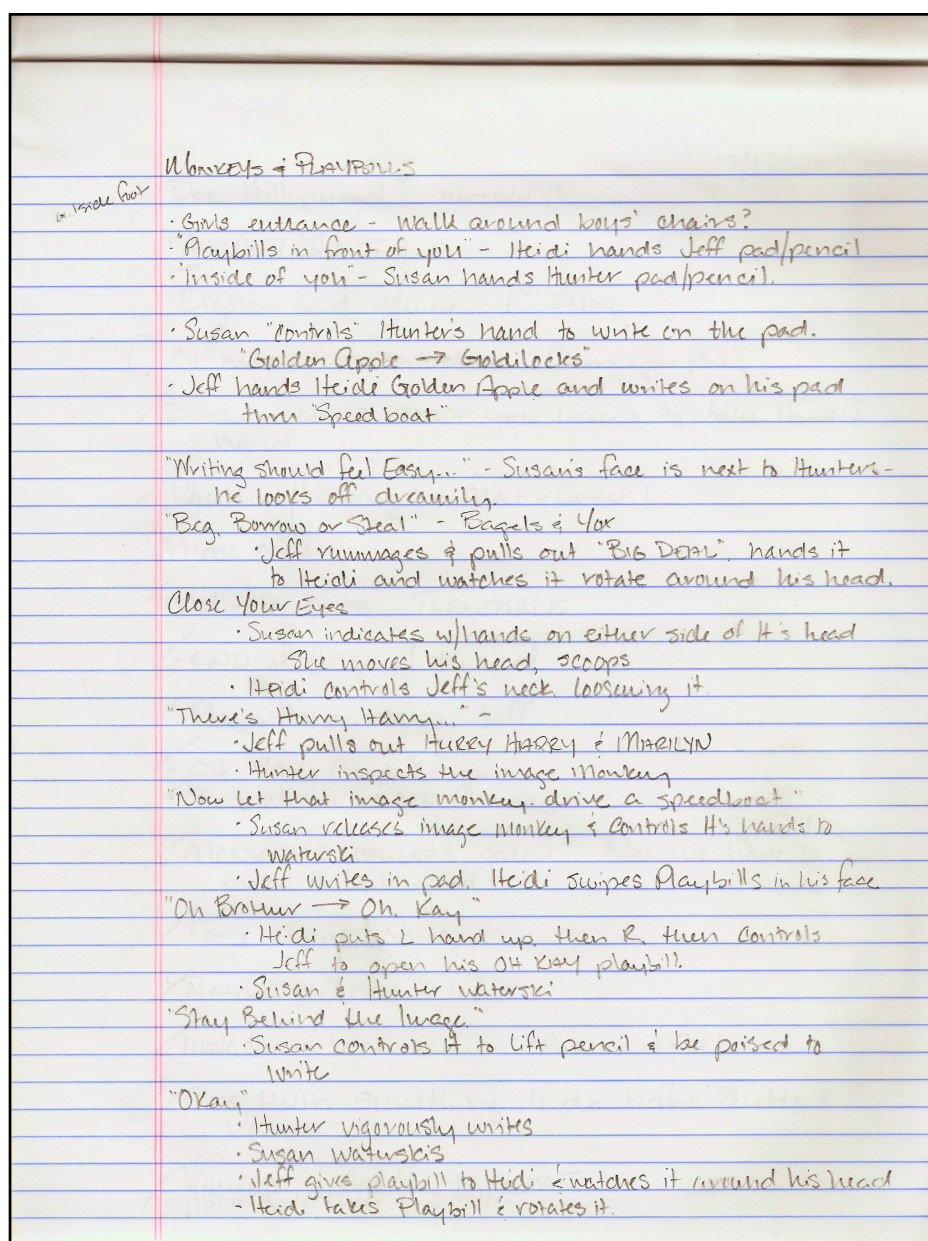 MONKEYS & PLAYBILLS
inside foot
· Girls entrance - walk around boys' chairs?
· "Playbills in front of you" - Heidi hands Jeff pad/pencil
· "Inside of you" - Susan hands Hunter pad/pencil.
· Susan "controls" Hunter's hand to write on the pad.
"Golden Apple → Goldilocks"
· Jeff hands Heidi Golden Apple and writes on his pad
thru "Speedboat"
"Writing should feel Easy..." - Susan's face is next to Hunters -
he looks off dreamily.
"Beg, Borrow or Steal" - Bagels & Yox
· Jeff rummages & pulls out "BIG DEAL", hands it
to Heidi and watches it rotate around his head.
Close Your Eyes
· Susan indicates w/hands on either side of H's head
She moves his head, scoops
· Heidi controls Jeff's neck loosening it.
"There's Hurry Harry..." -
· Jeff pulls out HURRY HARRY & MARILYN
· Hunter inspects the image monkey
"Now let that image monkey drive a speedboat"
· Susan releases image monkey & controls H's hands to
waterski
· Jeff writes in pad. Heidi swipes Playbills in his face
"Oh Brother → Oh, Kay"
· Heidi puts L hand up, then R, then controls
Jeff to open his OH KAY playbill.
· Susan & Hunter waterski
"Stay Behind the Image."
· Susan controls H to lift pencil & be poised to
write
"Okay"
· Hunter vigorously writes
· Susan waterskis
· Jeff gives playbill to Heidi & watches it around his head
- Heidi takes Playbill & rotates it.